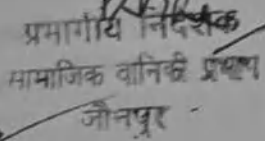 प्रभागीय निदेशक
सामाजिक वानिकी प्रभाग
जौनपुर -